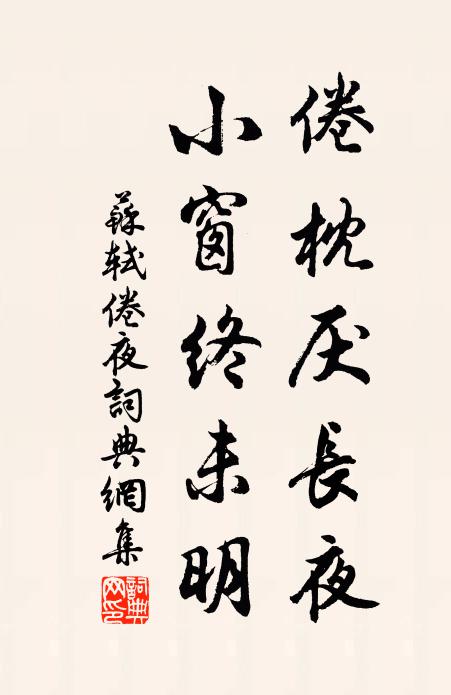 倦枕厌長夜
小窗終未明
蘇軾倦夜詞典網集
詞典网印